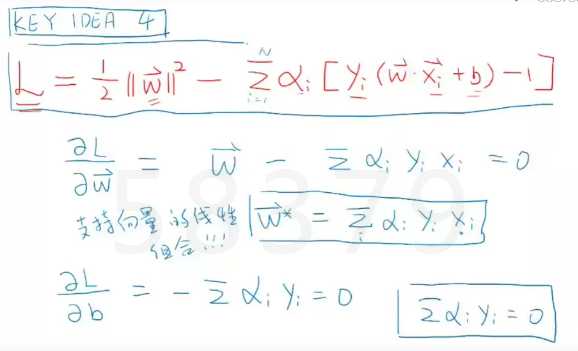 KEY IDEA 4
L = 1/2 ||w⃗||² - Σ_{i=1}^{N} αᵢ [ yᵢ (w⃗·x⃗ᵢ + b) - 1 ]
∂L/∂w⃗ = w⃗ - Σ αᵢ yᵢ xᵢ = 0
支持向量的线性组合!!! w⃗* = Σᵢ αᵢ yᵢ xᵢ
∂L/∂b = - Σ αᵢ yᵢ = 0 Σ αᵢ yᵢ = 0
58379